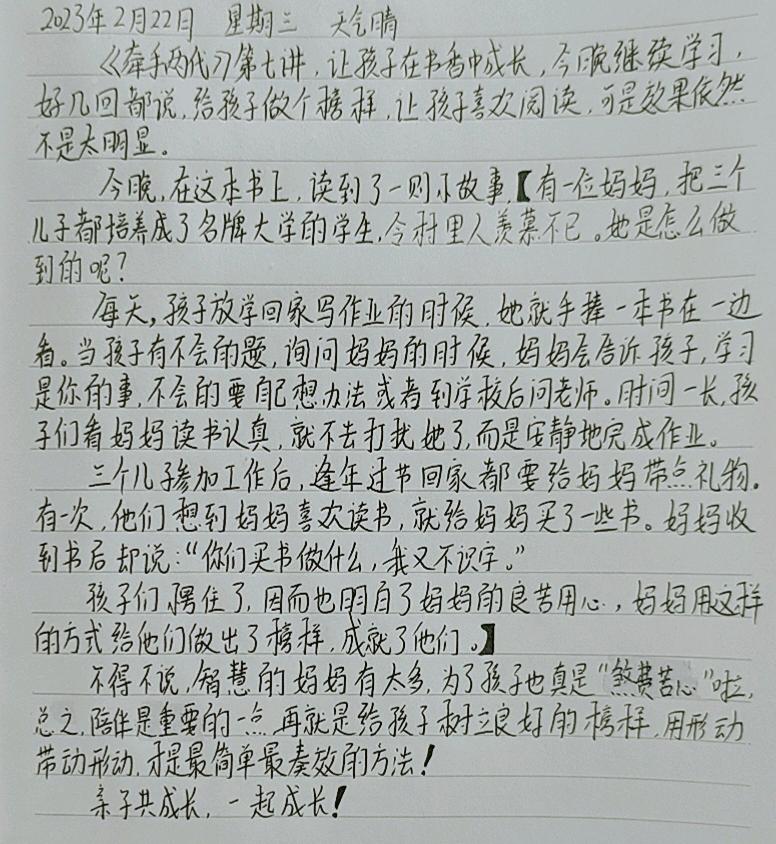 2023年2月22日 星期三 天气晴
《牵手两代》第七讲，让孩子在书香中成长，今晚继续学习，
好几回都说，给孩子做个榜样，让孩子喜欢阅读，可是效果依然
不是太明显。
今晚，在这本书上，读到了一则小故事，【有一位妈妈，把三个
儿子都培养成了名牌大学的学生，令村里人羡慕不已。她是怎么做
到的呢？
每天，孩子放学回家写作业的时候，她就手捧一本书在一边
看。当孩子有不会的题，询问妈妈的时候，妈妈会告诉孩子，学习
是你的事，不会的要自己想办法或者到学校后问老师。时间一长，孩
子们看妈妈读书认真，就不去打扰她了，而是安静地完成作业。
三个儿子参加工作后，逢年过节回家都要给妈妈带点礼物。
有一次，他们想到妈妈喜欢读书，就给妈妈买了一些书。妈妈收
到书后却说：“你们买书做什么，我又不识字。”
孩子们愣住了，因而也明白了妈妈的良苦用心，妈妈用这样
的方式给他们做出了榜样，成就了他们。】
不得不说，智慧的妈妈有太多，为了孩子也真是“煞费苦心”啦，
总之，陪伴是重要的一点，再就是给孩子树立良好的榜样，用形动
带动形动，才是最简单最奏效的方法！
亲子共成长，一起成长！